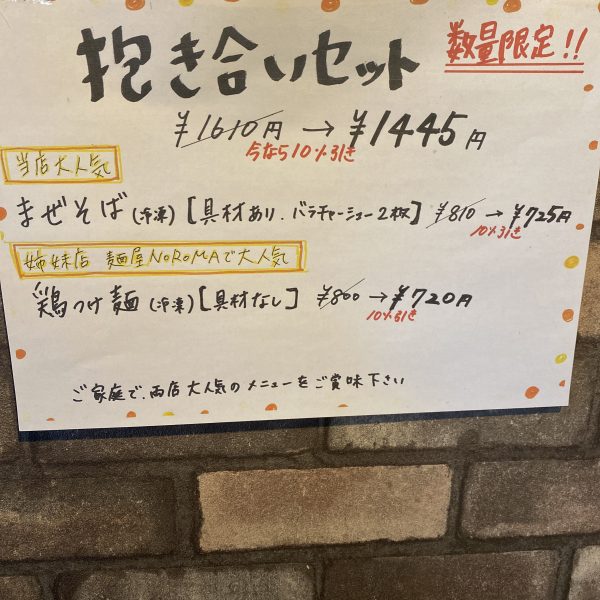 抱き合いセット
数量限定!!
¥1610円 → ¥1445円
今なら10%引き
当店大人気
まぜそば(冷凍)[具材あり.バラチャーシュー2枚] ¥810 → ¥725円
10%引き
姉妹店 麺屋NOROMAで大人気
鶏つけ麺(冷凍)[具材なし] ¥800 → ¥720円
10%引き
ご家庭で、両店大人気のメニューをご賞味下さい